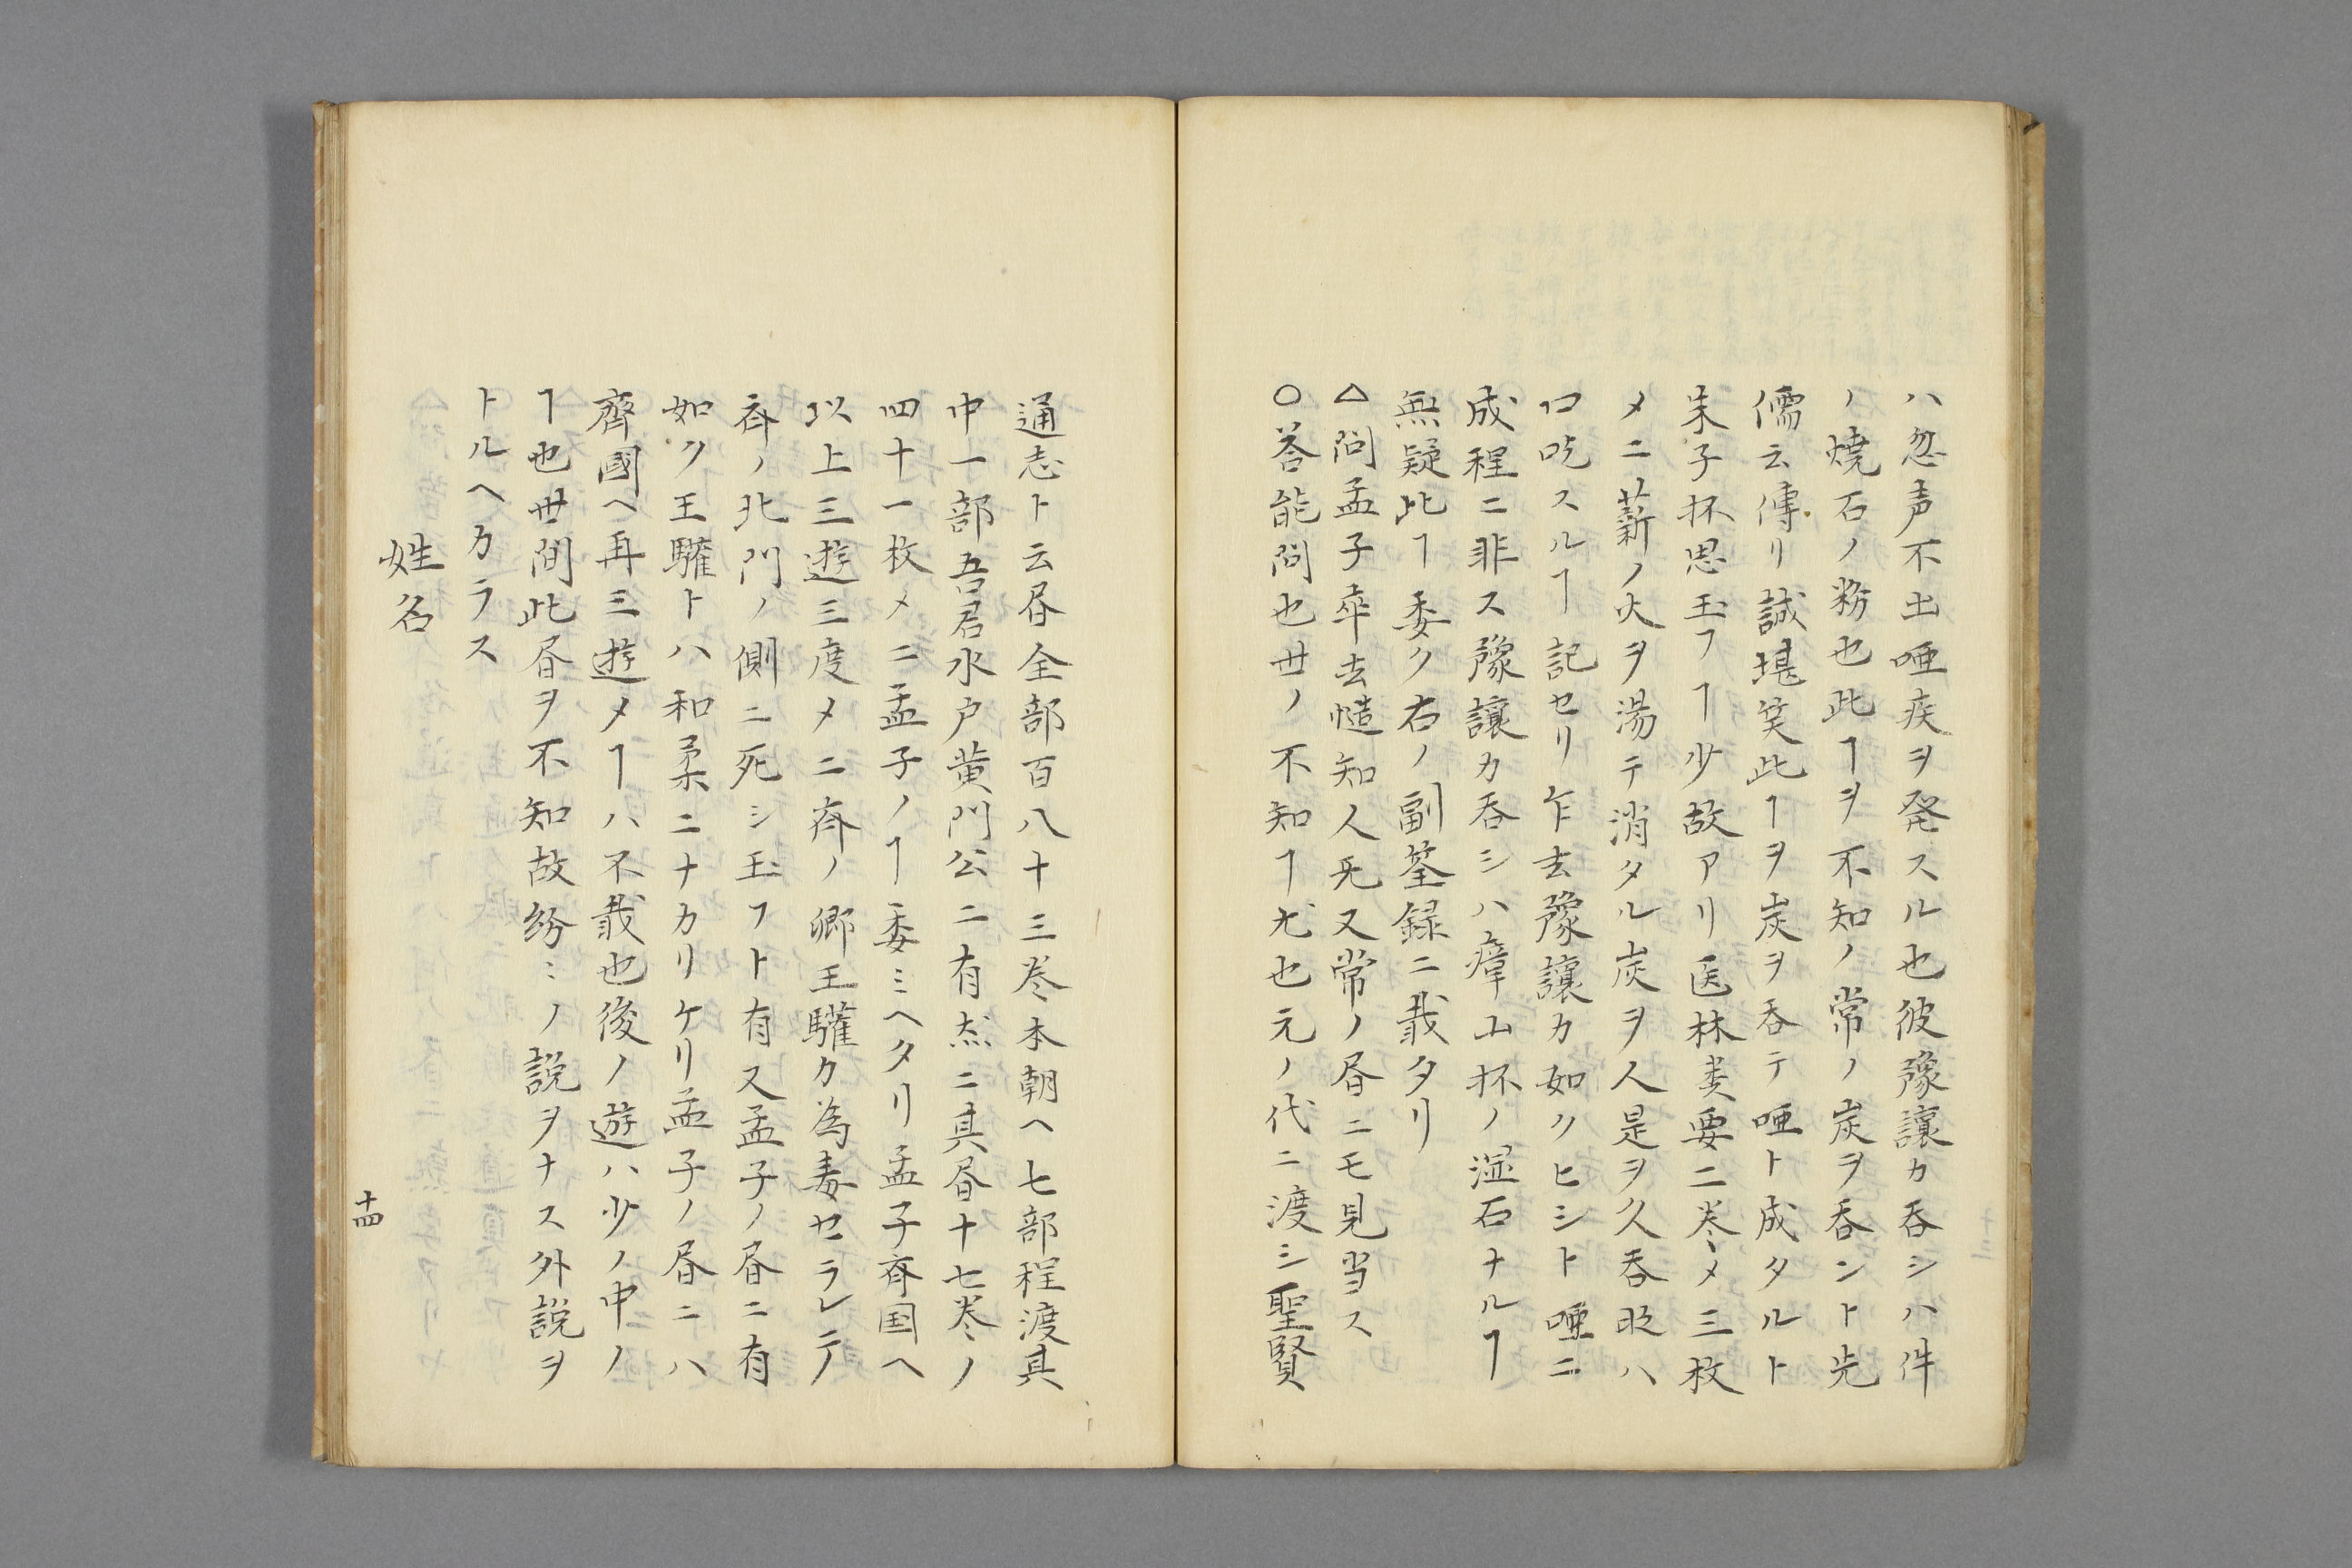 ハ忽声不土唖疾ヲ発スル也彼豫讓カ呑シハ件
ノ燒石ノ粉也此ヿヲ不知ノ常ノ炭ヲ呑ント先
儒云傳リ誠堪笑此ヿヲ炭ヲ呑テ唖ト成タルト
朱子抔思玉フヿ少故アリ医林类要二巻メ三枚
メニ薪ノ火ヲ湯テ消タル炭ヲ人是ヲ久呑時ハ
口吃スルヿ記セリ乍去豫讓カ如クヒシト唖ニ
成程ニ非ス豫讓カ呑シハ瘴山抔ノ湿石ナルヿ
無疑此ヿ委ク右ノ副筌録ニ載タリ
△問孟子卒去慥知人死又常ノ昼ニモ見当ス
○答能問也世ノ不知ヿ尤也元ノ代ニ渡シ聖賢
通志ト云昼全部百八十三巻本朝ヘ七部程渡其
中一部吾君水户黄門公ニ有㐂ニ其昼十七巻ノ
四十一枚メニ孟子ノヿ委ミヘタリ孟子斉国ヘ
以上三遊三度メニ斉ノ卿王驩カ為毒セラレテ
斉ノ北門ノ側ニ死シ玉フト有又孟子ノ昼ニ有
如ク王驩トハ和柔ニナカリケリ孟子ノ昼ニハ
齊國ヘ再三遊メヿハ不載也後ノ遊ハ少ノ中ノ
ヿ也世間此昼ヲ不知故紛ミノ説ヲナス外説ヲ
トルヘカラス
姓名
十四